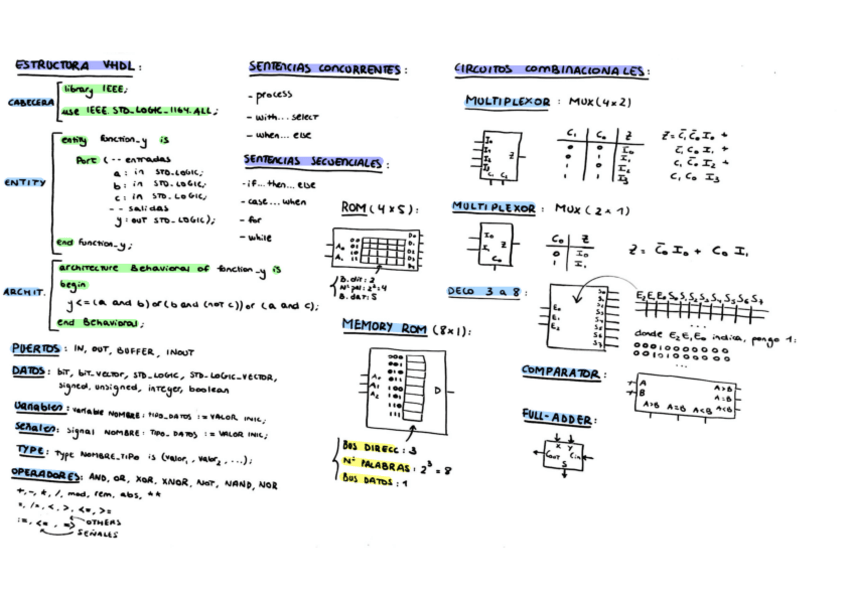 ESTRUCTURA VHDL:
CABECERA
library IEEE;
use IEEE.STD_LOGIC_1164.ALL;
ENTITY
entity function_y is
Port ( -- entradas
a: in STD_LOGIC;
b: in STD_LOGIC;
c: in STD_LOGIC;
-- salidas
y: out STD_LOGIC);
end function_y;
ARCHIT.
architecture Behavioral of function_y is
begin
y <= (a and b) or (b and (not c)) or (a and c);
end Behavioral;
PUERTOS: IN, OUT, BUFFER, INOUT
DATOS: bit, bit_vector, STD_LOGIC, STD_LOGIC_VECTOR,
signed, unsigned, integer, boolean
Variables: variable NOMBRE: TIPO_DATOS := VALOR INIC;
Señales: signal NOMBRE: TIPO_DATOS := VALOR INIC;
TYPE: Type NOMBRE_TIPO is (valor1, valor2, ...);
OPERADORES: AND, OR, XOR, XNOR, NOT, NAND, NOR
+, -, *, /, mod, rem, abs, **
=, /=, <, >, <=, >=
:=, <=, => OTHERS
SEÑALES
SENTENCIAS CONCURRENTES:
- process
- with... select
- when... else
SENTENCIAS SECUENCIALES:
- if... then... else
- case... when
- for
- while
ROM (4x5):
B. dir: 2
Nº pal: 2²=4
B. dat: 5
MEMORY ROM (8x1):
000
001
010
011
100
101
110
111
A0
A1
A2
D
BUS DIRECC: 3
Nº PALABRAS: 2³ = 8
BUS DATOS: 1
CIRCUITOS COMBINACIONALES:
MULTIPLEXOR: MUX (4x2)
I0
I1
I2
I3
Z
C1 C0
C1 C0 Z
0 0 I0
0 1 I1
1 0 I2
1 1 I3
Z = C̄1 C̄0 I0 +
C̄1 C0 I1 +
C1 C̄0 I2 +
C1 C0 I3
MULTIPLEXOR: MUX (2x1)
I0
I1
Z
C0
C0 Z
0 I0
1 I1
Z = C̄0 I0 + C0 I1
DECO 3 a 8:
E0
E1
E2
S0
S1
S2
S3
S4
S5
S6
S7
E2 E1 E0 S0 S1 S2 S3 S4 S5 S6 S7
...
donde E2 E1 E0 indica, pongo 1:
...
COMPARATOR:
A
B
A>B
A=B
A<B
A>B A=B A<B
FULL-ADDER:
X Y
Cout Cin
S